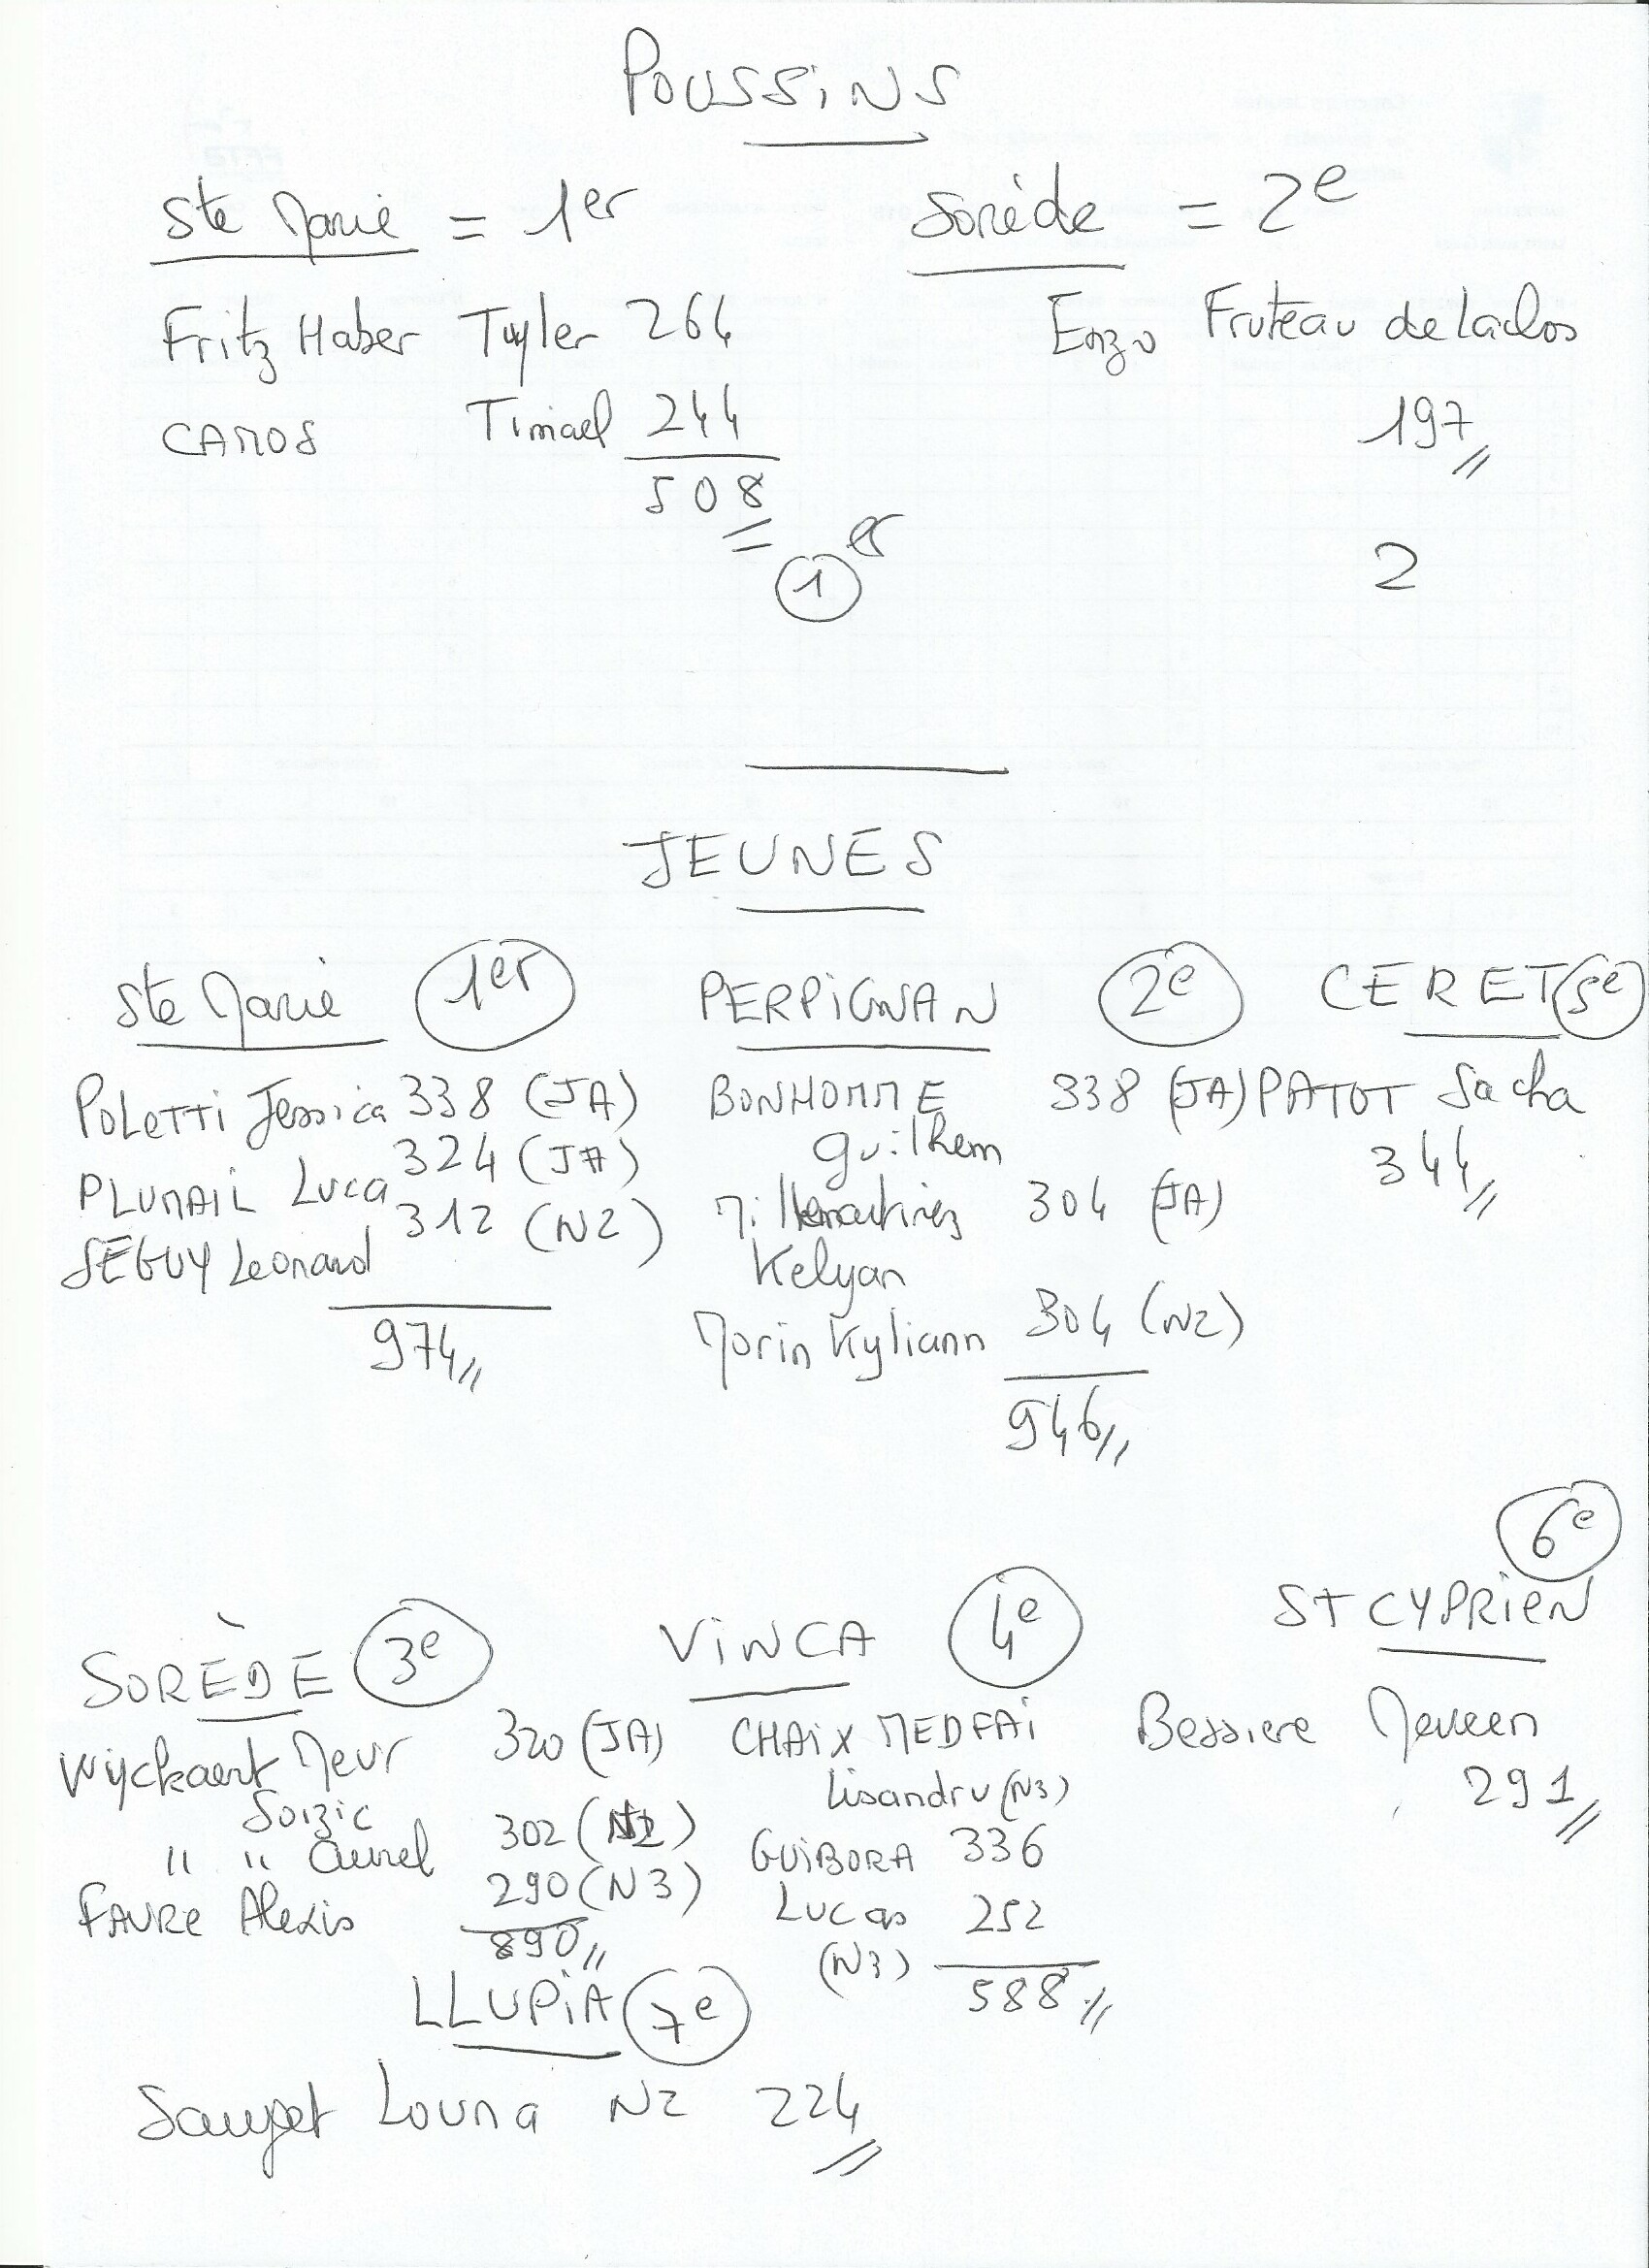 POUSSINS
Ste Marie = 1er
Fritz Haber Tyler 264
CAMOS Timael 244
508
1 er
Sorède = 2e
Enzo Fruteau de laclos
197
2
JEUNES
Ste Marie 1er
POLETTI Jessica 338 (JA)
PLUMAIL Luca 324 (JA)
SEGUY Leonard 312 (N2)
974
PERPIGNAN 2e
BONHOMME 338 (JA)
guilhem
304 (JA)
Kelyan
Morin Kyliann 304 (N2)
946
CERET 5e
PATOT Sacha
344
SORÈDE 3e
Wyckaert Meur 320 (JA)
Soizic
" " Aurel 302 (N2)
FAVRE Alexis 290 (N3)
890
VINCA 4e
CHAIX MEDFAI
Lisandru (N3)
GUIBORA 336
Lucas 252
(N3)
588
6e
ST CYPRIEN
Bessiere
291
LLUPIA 7e
Louna N2 224